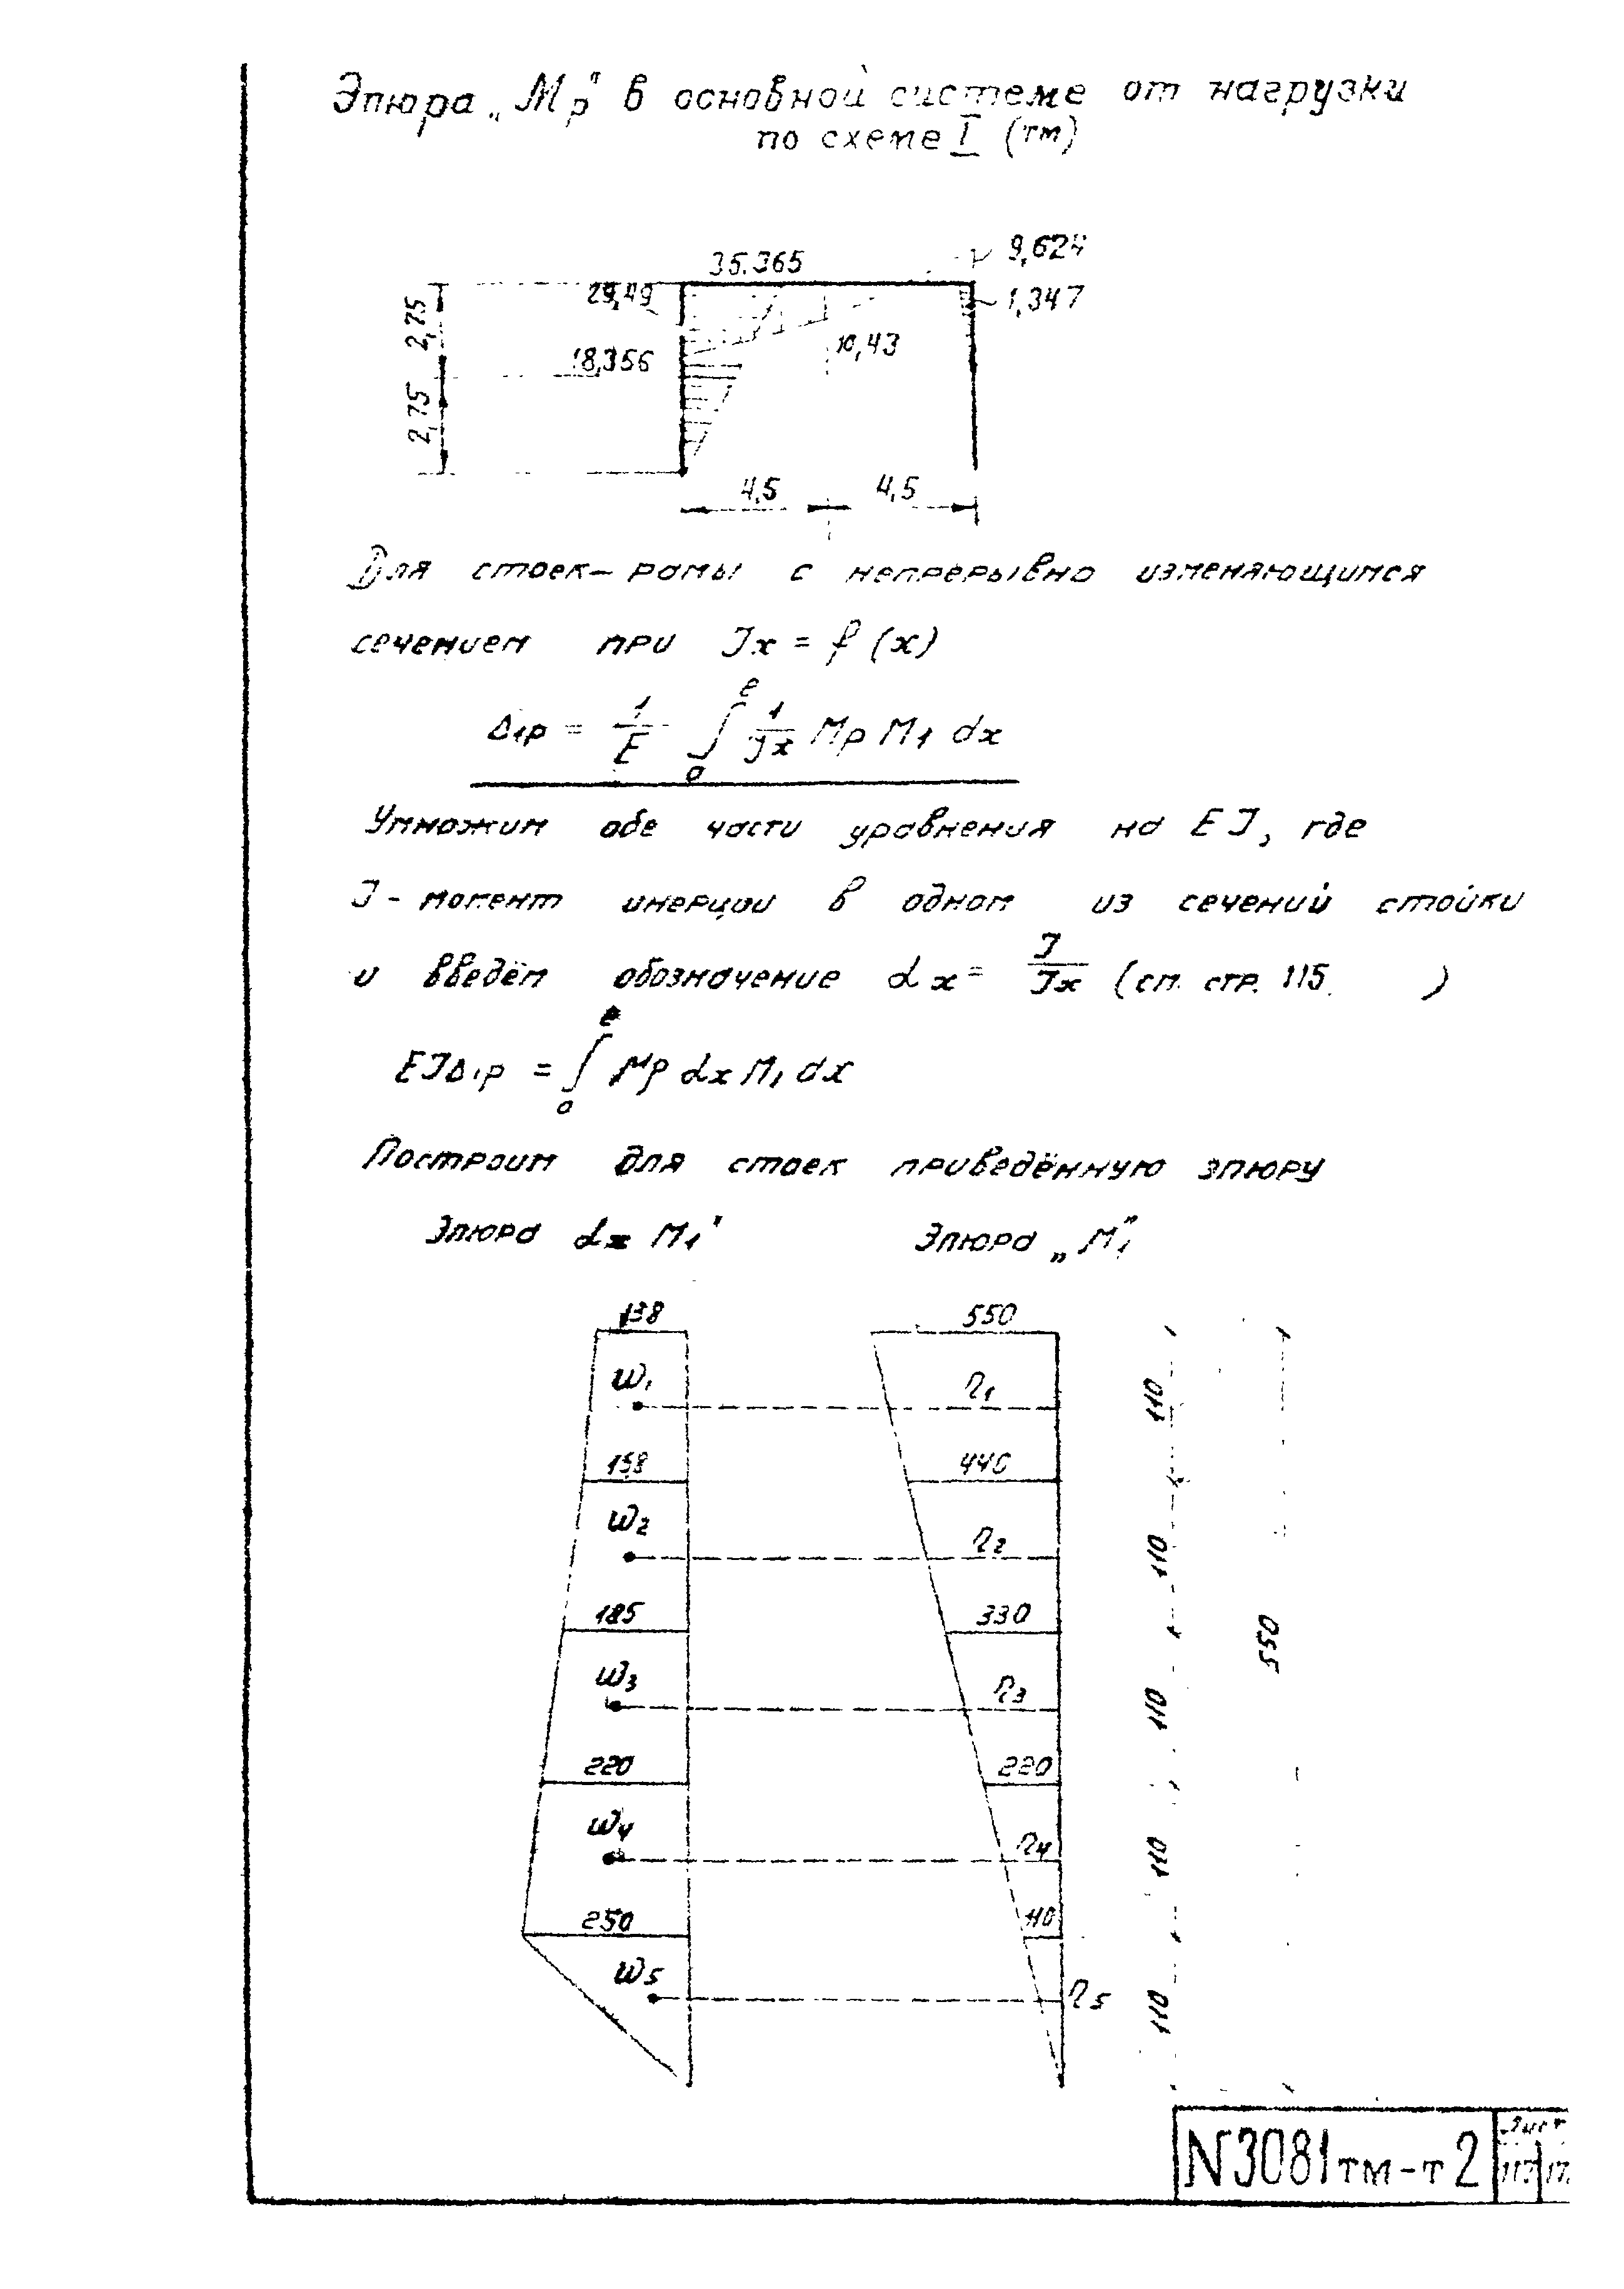 Эпюра „Mр" в основной системе от нагрузки
по схеме I (тм)
35.365
9,624
29,49
1,347
18,356
10,43
2,75
2,75
4,5
4,5
Для стоек-рамы с непрерывно изменяющимся
сечением при Jx = f (x)
Δ1р = 1/E ∫₀^ℓ 1/Jx Mр M1 dx
Умножим обе части уравнения на EJ, где
J - момент инерции в одном из сечений стойки
и введём обозначение αx = J/Jx (см. стр. 115 )
EJΔ1р = ∫₀^ℓ Mр αx M1 dx
Построим для стоек приведённую эпюру
Эпюра αx M1"
Эпюра „M1"
138
550
ω1
η1
110
158
440
ω2
η2
110
185
330
550
ω3
η3
110
220
220
ω4
η4
110
250
110
ω5
η5
110
N3081тм-т2
Лист